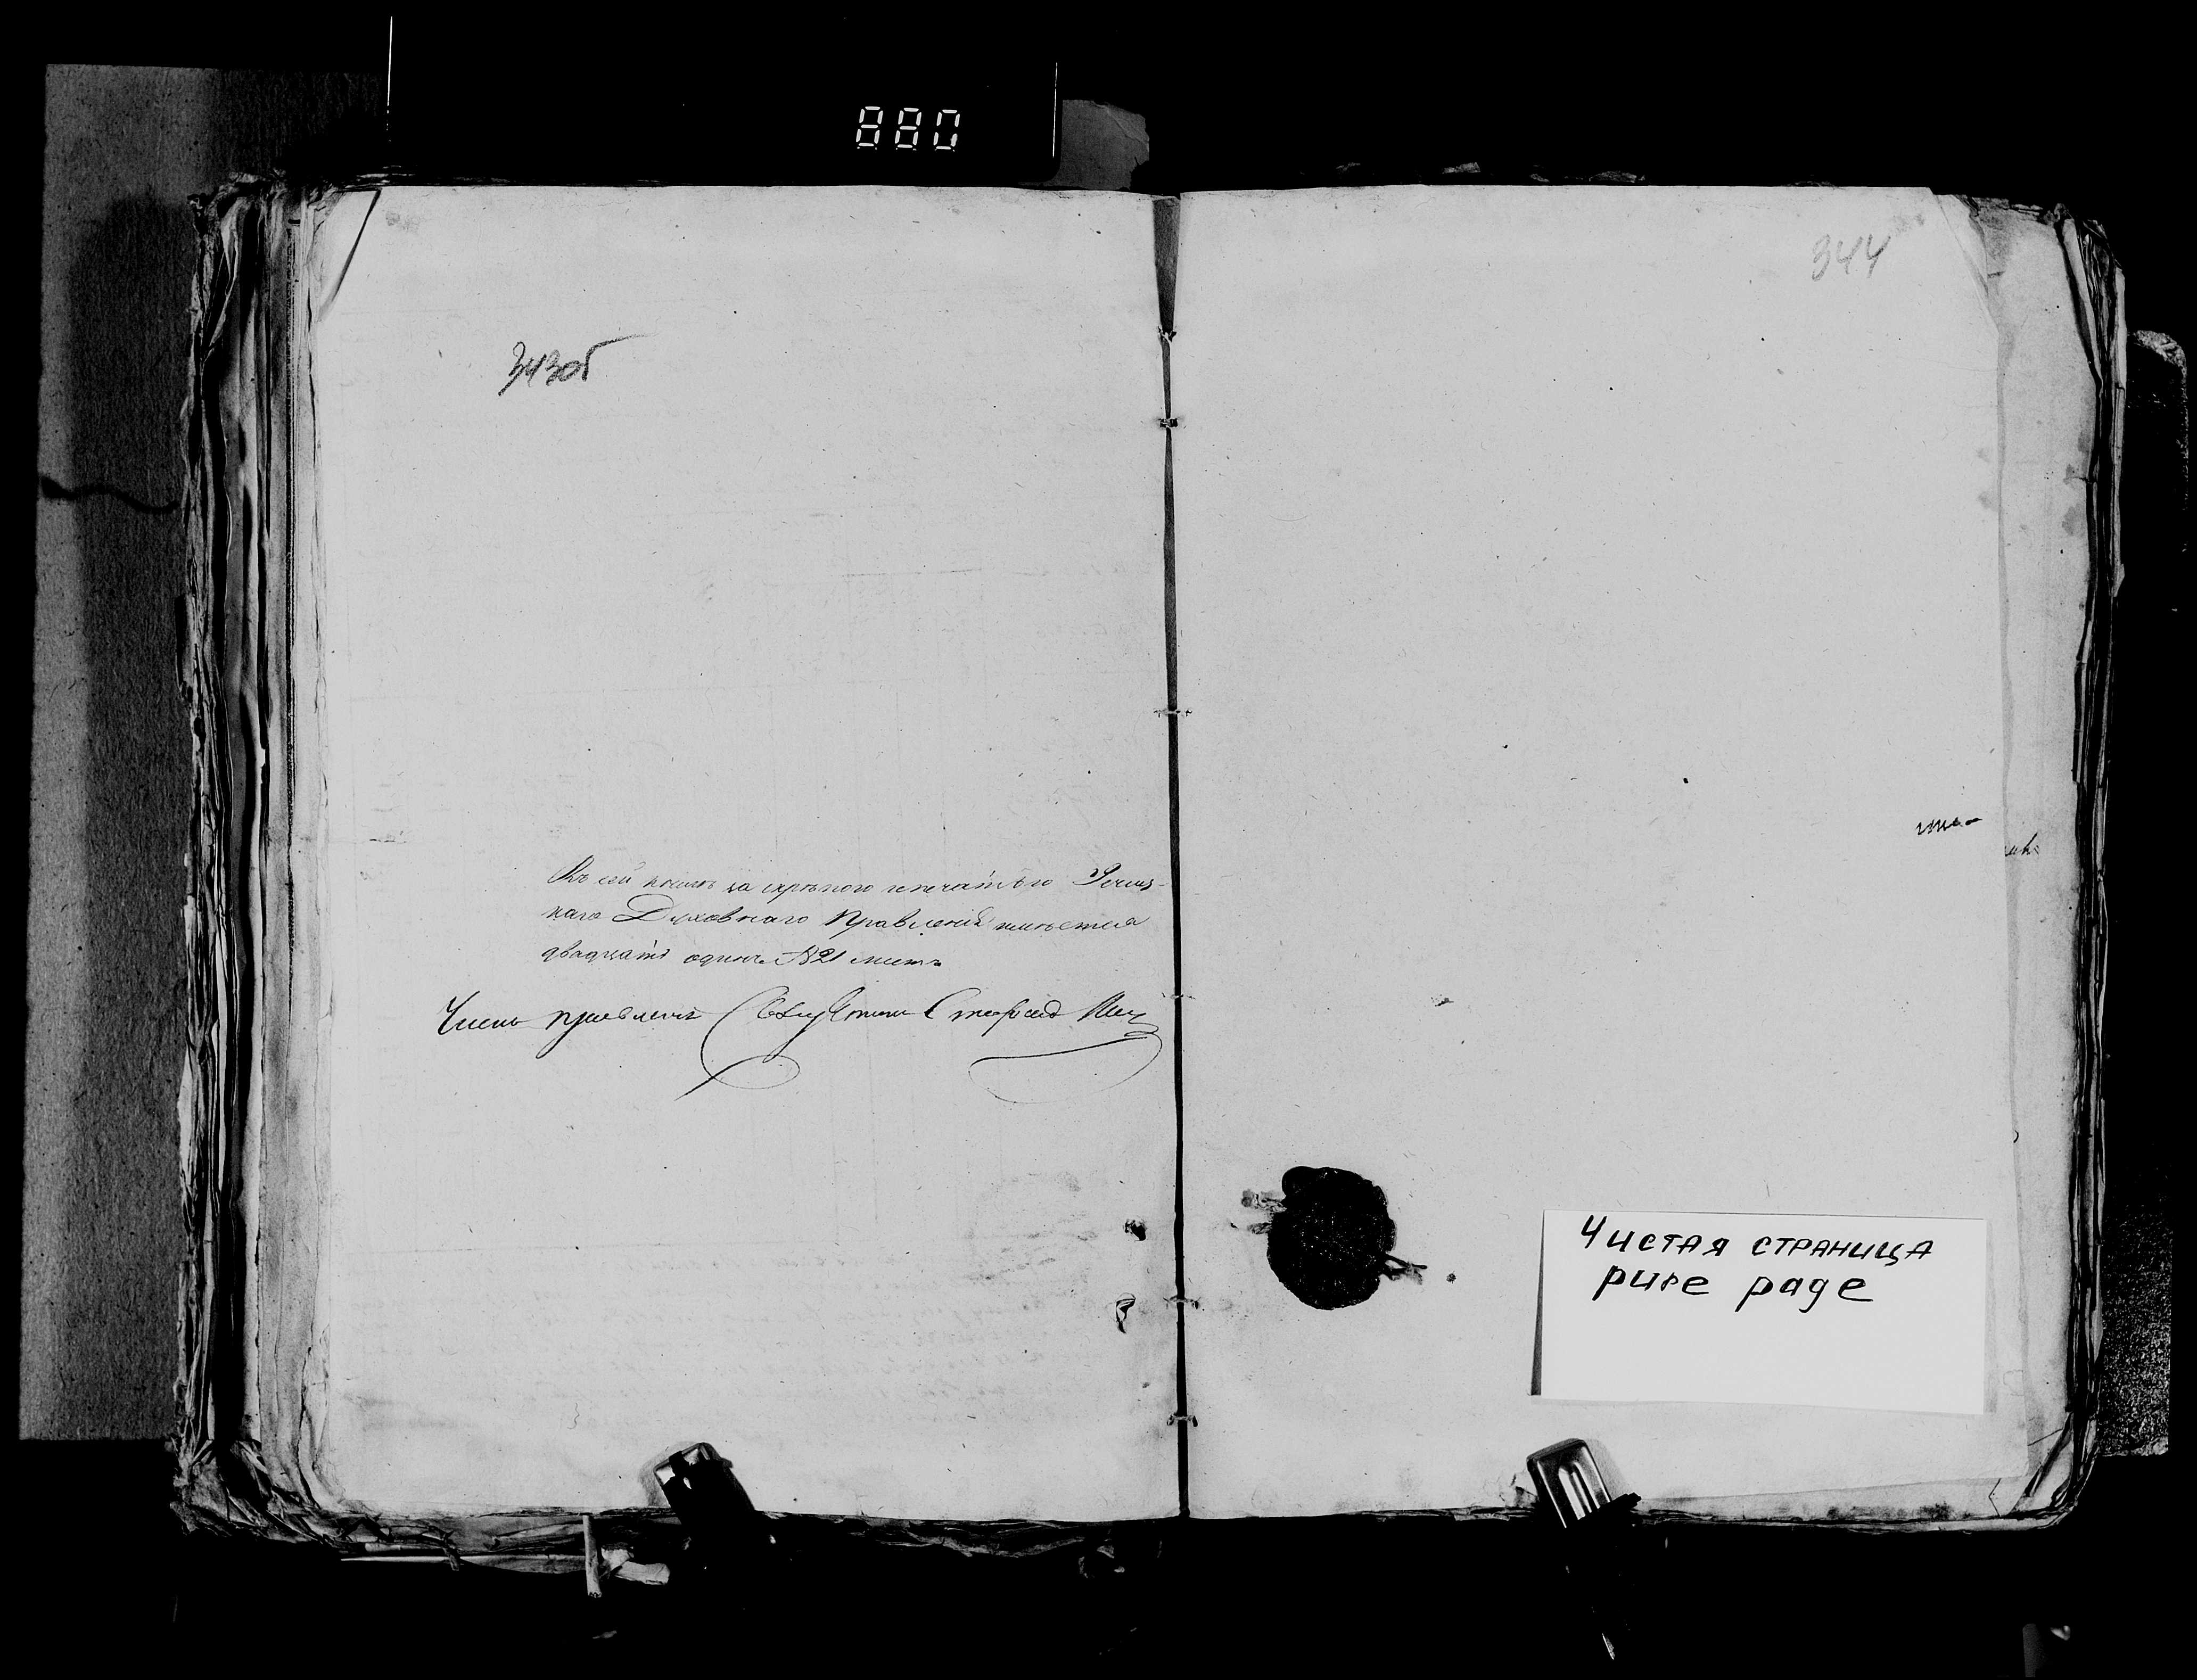 880
343об
344
Въ сей книгѣ за скрѣпою и печатью Речиц-
каго Духовнаго Правленія имѣется
двадцать одинъ 21 листъ
Членъ правленія Священникъ
Чистая страница
pure page